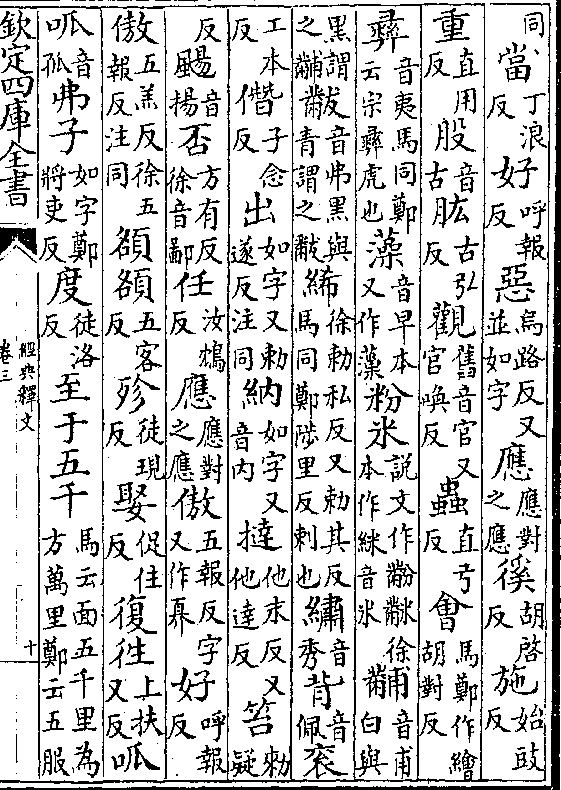 同當丁浪反好呼報反惡烏路反又並如字應應對之應徯胡啓反施始豉反
重直用反股音古肱古弘反觀舊音官又官喚反蟲直弓反會馬鄭作繪胡對反
彝音夷馬同鄭云宗彝虎也藻音早本又作薻粉米說文作黺䋛徐本作絖音米黼音甫白與
黑謂之黼黻音弗黑與青謂之黻絺徐勑私反又勑其反馬同鄭陟里反刺也繡音秀背音佩衮
工本反僭子念反出如字又勑遂反注同納如字又音内撻他末反又他達反笞勑疑
反颺音揚否方有反徐音鄙任汝鴆反應應對之應傲五報反字又作奡好呼報反
傲五羔反徐五報反注同頟頟五客反殄徒現反娶促住反復往上扶又反呱
音孤弗子如字鄭將吏反度徒洛反至于五千馬云面五千里為方萬里鄭云五服
欽定四庫全書
經典釋文
卷三
十